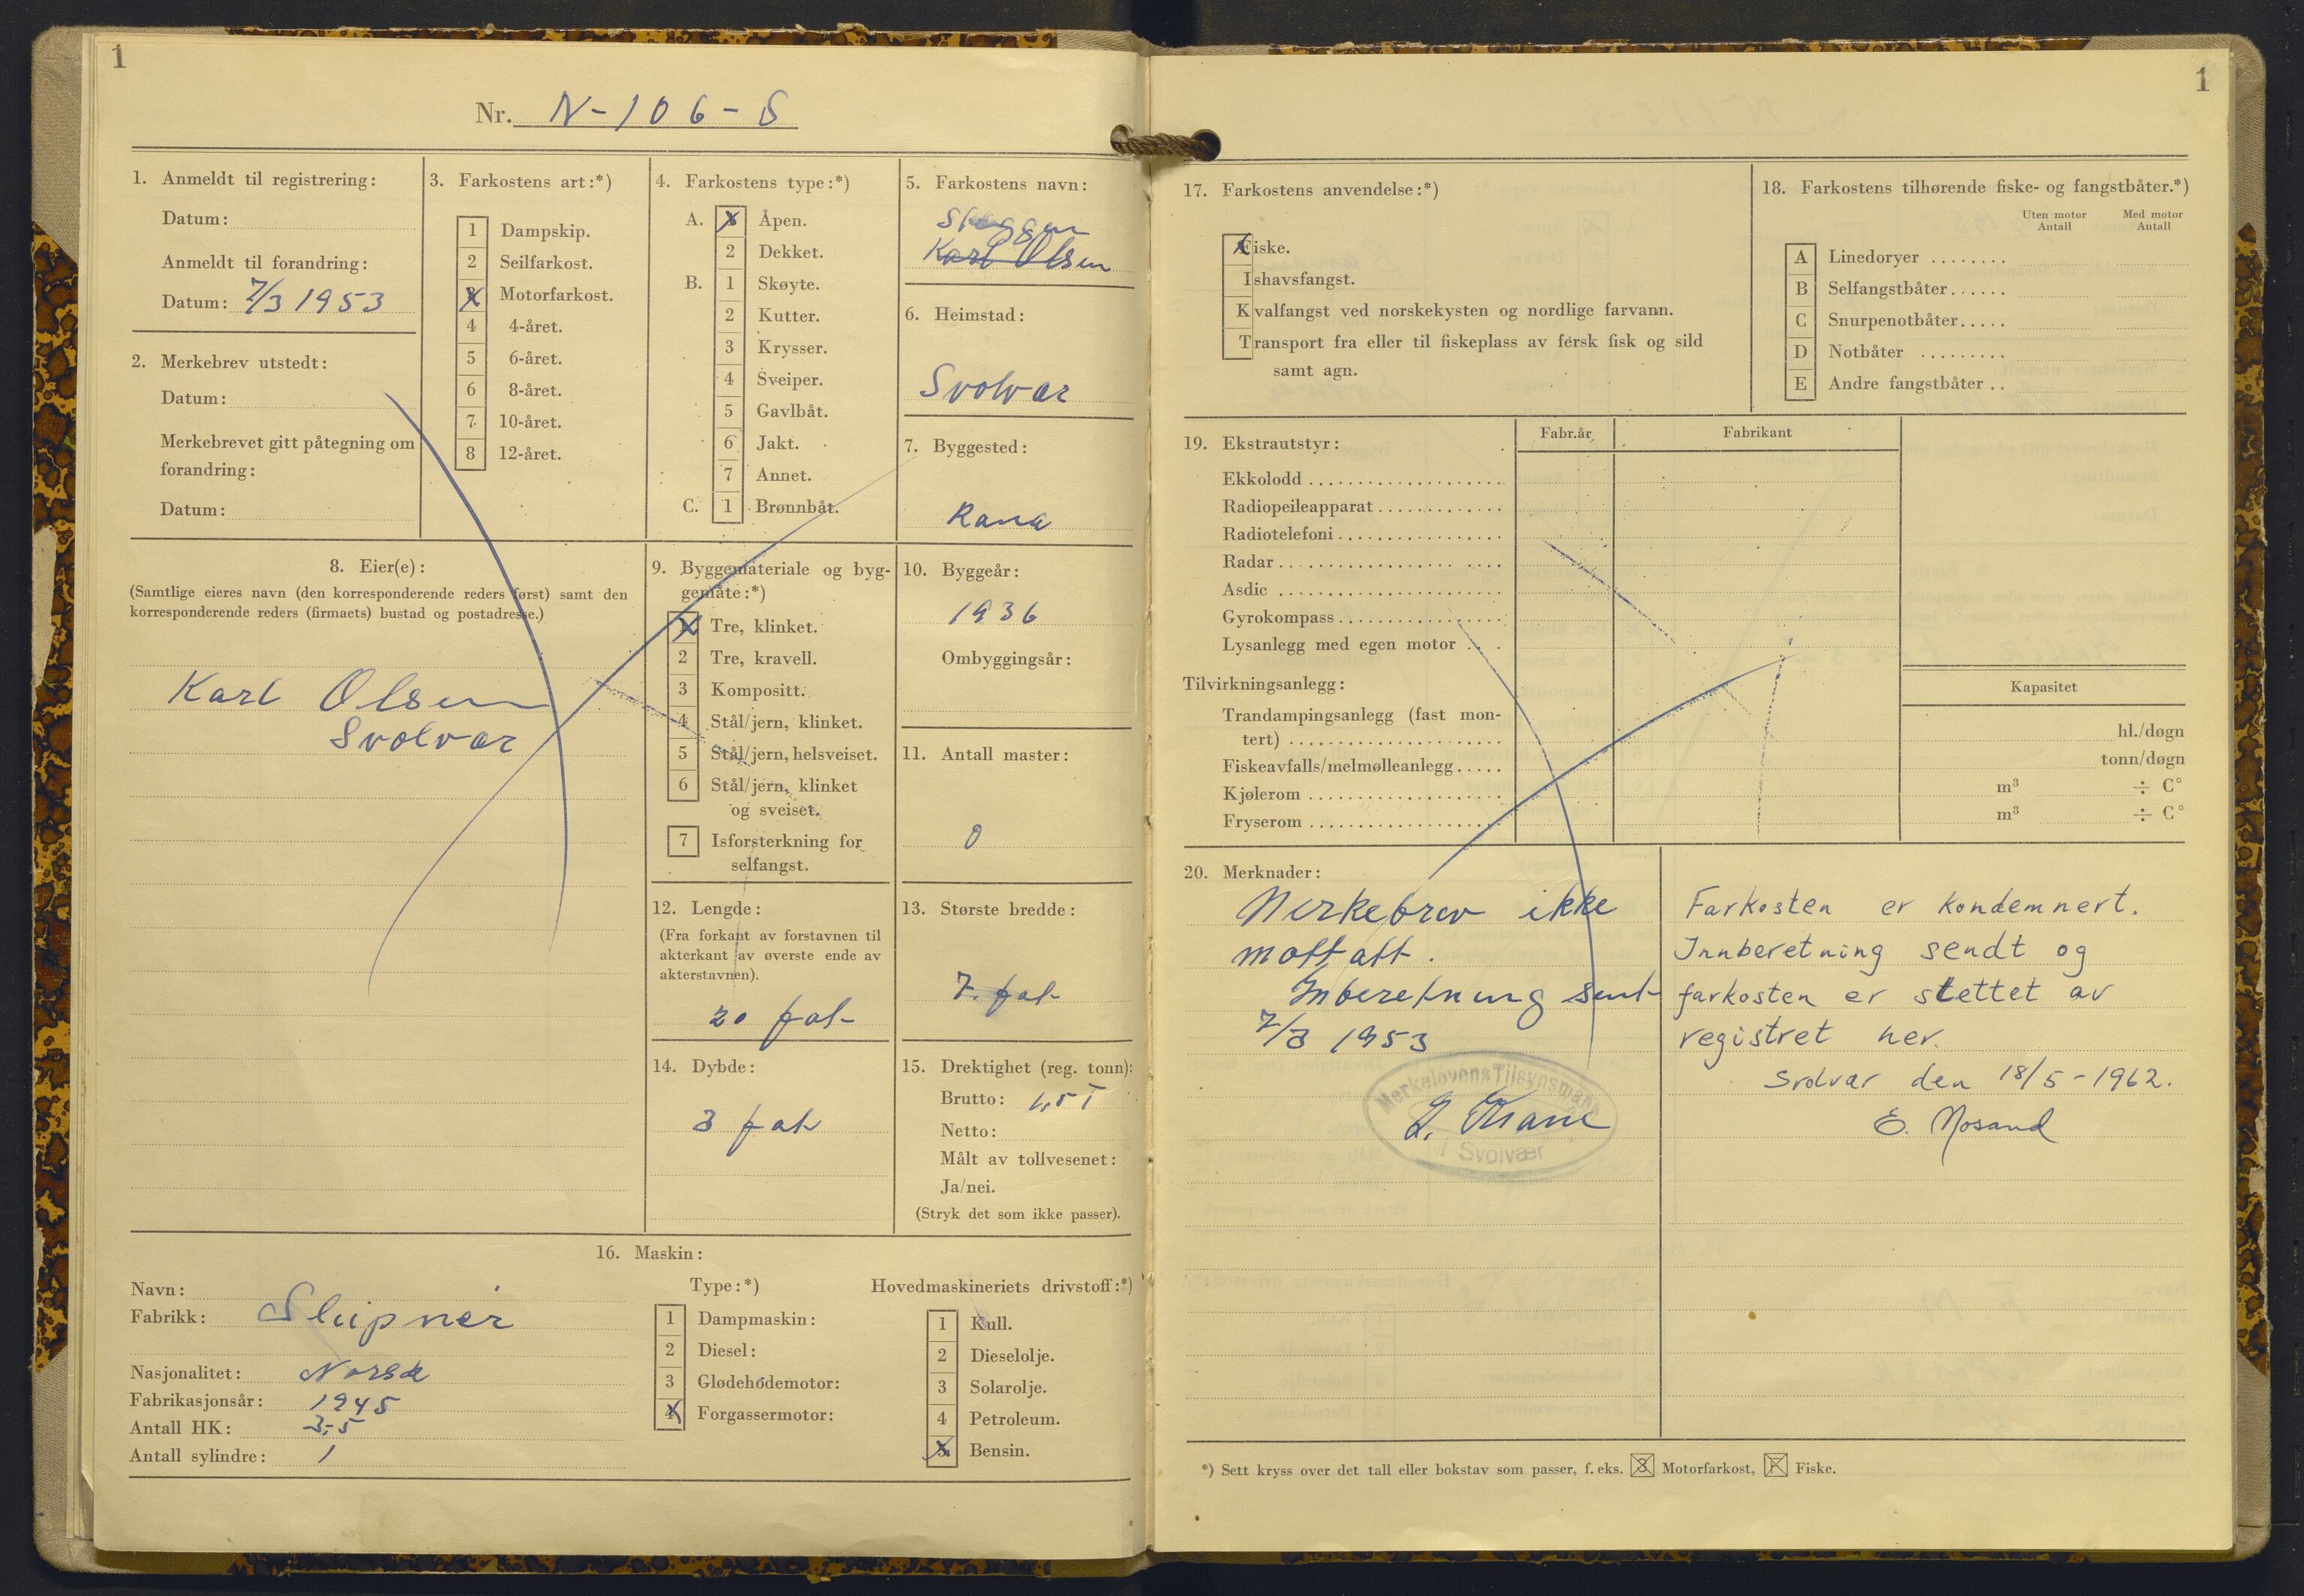 1
Nr. N-106-S
1. Anmeldt til registrering:
Datum:
Anmeldt til forandring:
Datum: 7/3 1953
2. Merkebrev utstedt:
Datum:
Merkebrevet gitt påtegning om
forandring:
Datum:
3. Farkostens art:*)
1 Dampskip.
2 Seilfarkost.
X Motorfarkost.
4 4-året.
5 6-året.
6 8-året.
7 10-året.
8 12-året.
4. Farkostens type:*)
A. X Åpen.
2 Dekket.
B. 1 Skøyte.
2 Kutter.
3 Krysser.
4 Sveiper.
5 Gavlbåt.
6 Jakt.
7 Annet.
C. 1 Brønnbåt.
5. Farkostens navn:
Karl Olsen
6. Heimstad:
Svolvær
7. Byggested:
Rana
8. Eier(e):
(Samtlige eieres navn (den korresponderende reders først) samt den
korresponderende reders (firmaets) bustad og postadresse.)
Karl Olsen
Svolvær
9. Byggemateriale og byg-
gemåte:*)
X Tre, klinket.
2 Tre, kravell.
3 Kompositt.
4 Stål/jern, klinket.
5 Stål/jern, helsveiset.
6 Stål/jern, klinket
og sveiset.
7 Isforsterkning for
selfangst.
10. Byggeår:
1936
Ombyggingsår:
11. Antall master:
0
12. Lengde:
(Fra forkant av forstavnen til
akterkant av øverste ende av
akterstavnen).
20 fot
13. Største bredde:
7. fot
14. Dybde:
3 fot
15. Drektighet (reg. tonn):
Brutto: 1,5 T
Netto:
Målt av tollvesenet:
Ja/nei.
(Stryk det som ikke passer).
16. Maskin:
Navn:
Fabrikk: Sleipner
Nasjonalitet: Norsk
Fabrikasjonsår: 1945
Antall HK: 3-5
Antall sylindre: 1
Type:*)
1 Dampmaskin:
2 Diesel:
3 Glødehodemotor:
X Forgassermotor:
Hovedmaskineriets drivstoff:*)
1 Kull.
2 Dieselolje.
3 Solarolje.
4 Petroleum.
X Bensin.
1
17. Farkostens anvendelse:*)
Fiske.
Ishavsfangst.
Kvalfangst ved norskekysten og nordlige farvann.
Transport fra eller til fiskeplass av fersk fisk og sild
samt agn.
18. Farkostens tilhørende fiske- og fangstbåter.*)
Uten motor Antall
Med motor Antall
A Linedoryer
B Selfangstbåter
C Snurpenotbåter
D Notbåter
E Andre fangstbåter
19. Ekstrautstyr:
Fabr.år
Fabrikant
Ekkolodd
Radiopeileapparat
Radiotelefoni
Radar
Asdic
Gyrokompass
Lysanlegg med egen motor
Tilvirkningsanlegg:
Kapasitet
Trandampingsanlegg (fast mon-
tert) hl./døgn
Fiskeavfalls/melmølleanlegg tonn/døgn
Kjølerom m³ ÷ C°
Fryserom m³ ÷ C°
20. Merknader:
Merkebrev ikke
mottatt.
Inberetning sent
7/3 1953
Merkelovens Tilsynsmann
i Svolvær
Farkosten er kondemnert.
Innberetning sendt og
farkosten er slettet av
registret her.
Svolvær den 18/5-1962.
E. Mosand
*) Sett kryss over det tall eller bokstav som passer, f. eks. 3 Motorfarkost, F Fiske.